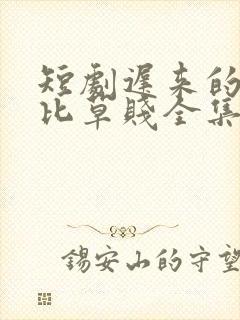 短劇遲来的
比草賤全集
錫安山的守望